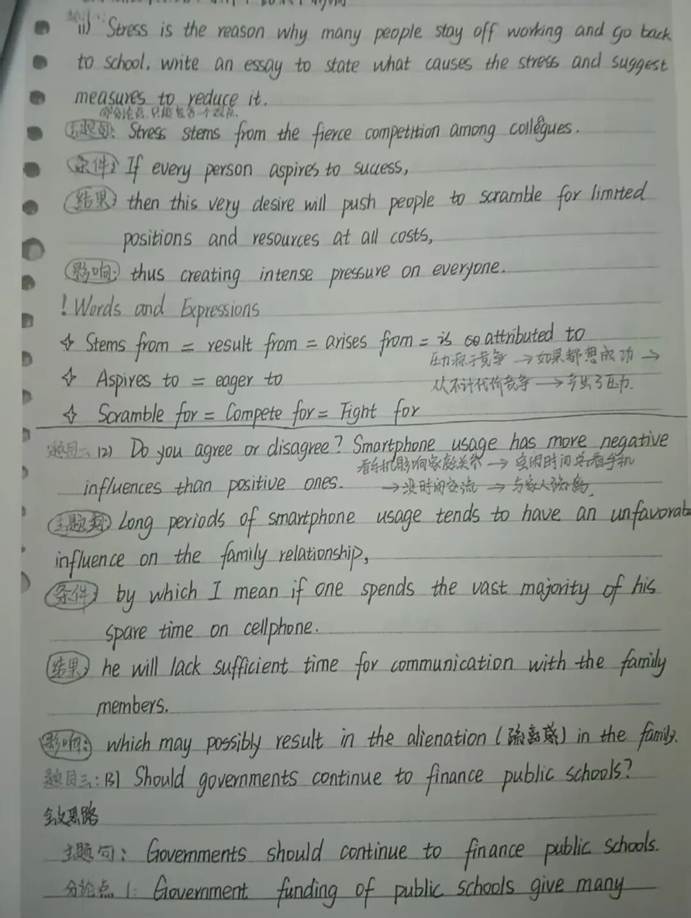 11) Stress is the reason why many people stay off working and go back
to school. write an essay to state what causes the stress and suggest
measures to reduce it.
主题句: Stress stems from the fierce competition among collegues.
条件: If every person aspires to success,
结果: then this very desire will push people to scramble for limited
positions and resources at all costs,
影响: thus creating intense pressure on everyone.
! Words and Expressions
Stems from = result from = arises from = is attributed to
压力源于竞争 → 如果都想成功 →
Aspires to = eager to
从不计代价竞争 → 产生了压力.
Scramble for = Compete for = Fight for
题目二 12) Do you agree or disagree? Smartphone usage has more negative
看手机影响家庭关系 → 空闲时间
influences than positive ones.
→ 没时间交流 → 与家人疏离
主题句 Long periods of smartphone usage tends to have an unfavorab
influence on the family relationship,
条件 by which I mean if one spends the vast majority of his
spare time on cellphone.
结果 he will lack sufficient time for communication with the family
members.
影响: which may possibly result in the alienation (疏离感) in the family.
题目三: 13) Should governments continue to finance public schools?
全文思路
主题句: Governments should continue to finance public schools.
分论点 1: Government funding of public schools give many